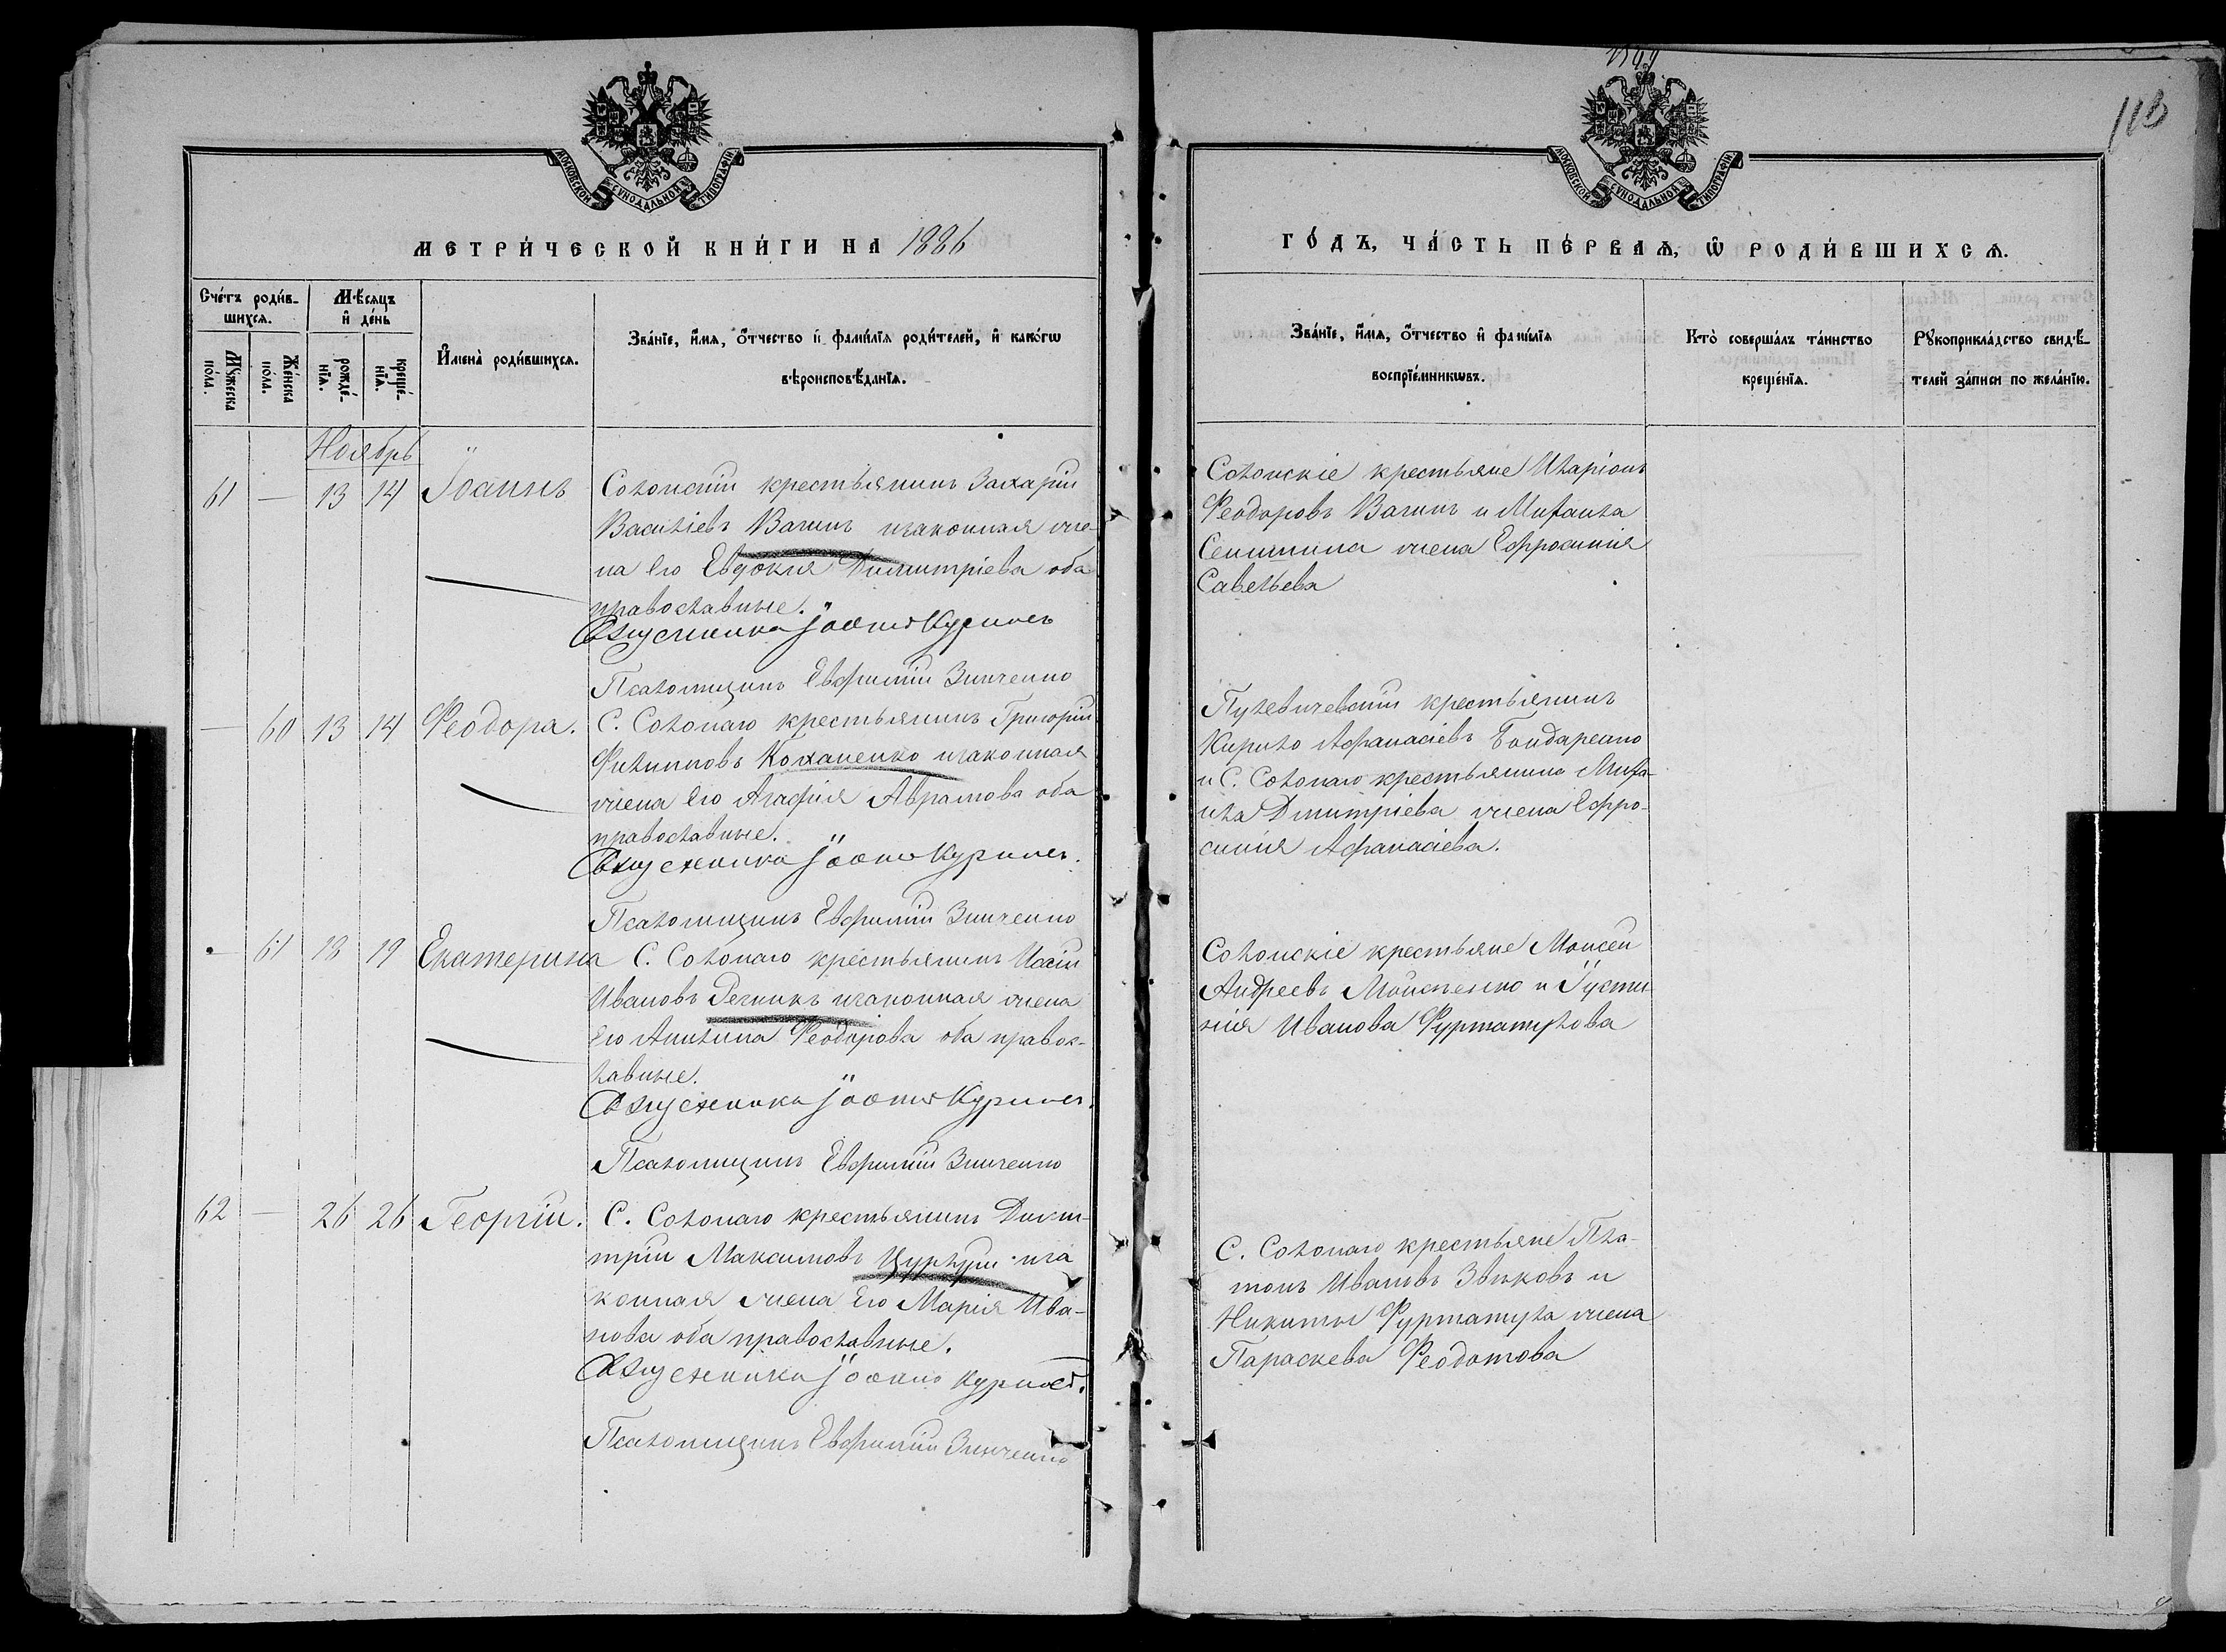 МОСКОВСКОЙ СѴНОДАЛЬНОЙ ТИПОГРАФІИ
МЕТРИ́ЧЕСКОЙ КНИ́ГИ НА 1886
Сче́тъ роди́в-
шихсѧ.
Мѣ́сѧцъ
и҆ де́нь
И҆мена̀ роди́вшихсѧ.
Зва́нїе, и҆́мѧ, ѻ҆́тчество и҆ фами́лїѧ роди́телей, и҆ како́гѡ
вѣроисповѣ́данїѧ.
Мꙋ́жеска
по́ла.
Же́нска
по́ла.
рожде́-
нїѧ.
креще́-
нїѧ.
Ноябрь
61 — 13 14 Іоаннъ Солонскій крестьянинъ Захарій
Василіевъ Вагинъ изаконная же-
на Его Евдокия Димитріева оба
православные.
Священникъ Іоаннъ Куринев
Псаломщикъ Евфимій Зинченко
— 60 13 14 Феодора. С. Солонаго крестьянинъ Григорій
Филиповъ Коханенко изаконная
жена Его Агафия Аврамова оба
православные.
Священникъ Іоаннъ Куринев.
Псаломщикъ Евфимій Зинченко
— 61 18 19 Екатерина С. Солонаго крестьянинъ
Ивановъ Речникъ изаконная жена
Его Акилина Феодорова оба правос-
лавные.
Священникъ Іоаннъ Куринев.
Псаломщикъ Евфимій Зинченко
62 — 26 26 Георгій. С. Солонаго крестьянинъ Дими-
трій Максимовъ Цуркуй иза
конная жена Его Марія Ива-
нова оба православные.
Священникъ Іоаннъ
Псаломщикъ Евфимій Зинченко
113
МОСКОВСКОЙ СѴНОДАЛЬНОЙ ТИПОГРАФІИ
ГО́ДЪ, ЧА́СТЬ ПЕ́РВАѦ, Ѡ҆ РОДИ́ВШИХСѦ.
Зва́нїе, и҆́мѧ, ѻ҆́тчество и҆ фами́лїѧ
воспрїе́мникѡвъ.
Кто̀ соверша́лъ та́инство
креще́нїѧ.
Рꙋкоприкла́дство свидѣ́-
телей за́писи по жела́нїю.
Солонскіе крестьяне Иларіонъ
Феодоровъ Вагинъ и Михаила
Сенишина жена Ефросинія
Савельева
Пулевичевскій крестьянинъ
Кирило Афанасіевъ Бондаренко
и С. Солонаго крестьянина Миха-
ила Димитріева жена Ефро-
синія Афанасіева.
Солонскіе крестьяне Моисей
Андреевъ Моисеенко и Іусти-
нія Иванова Фуртатулова
С. Солонаго крестьяне Пла-
тонъ Ивановъ Звиковъ и
Никиты Фуртатула жена
Параскева Феодотова